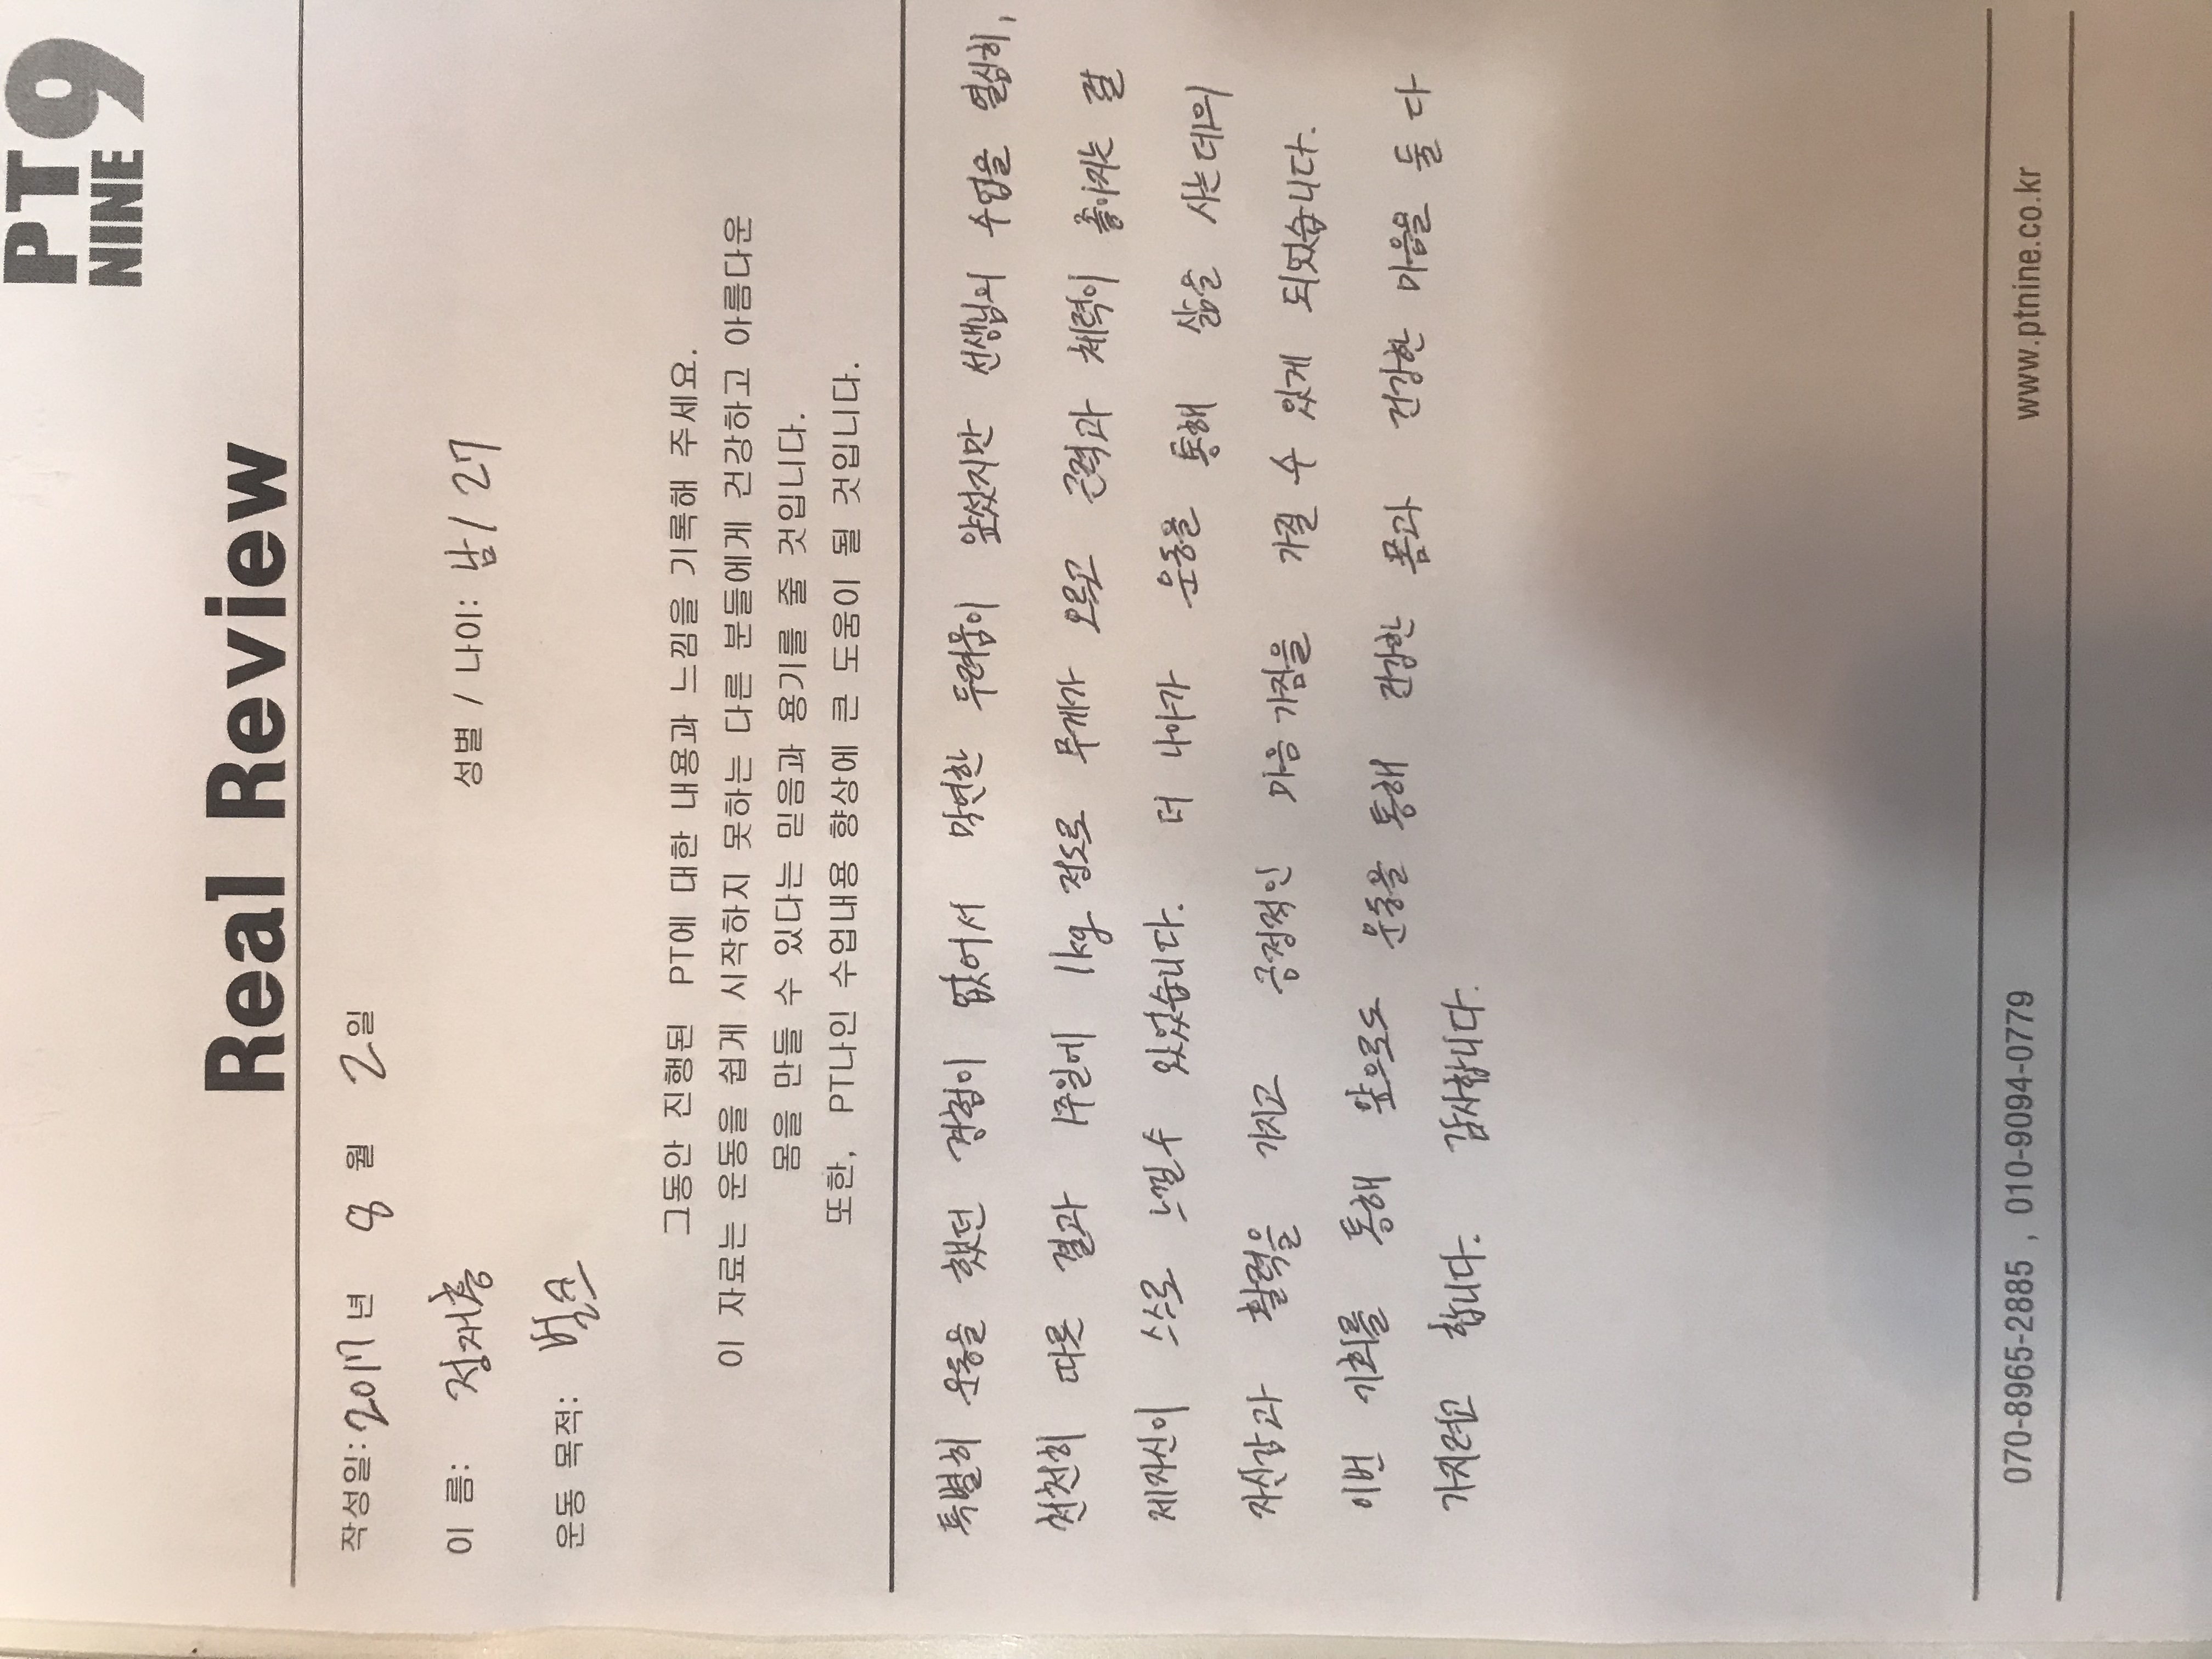 PT9
NINE
Real Review
작성일: 2017년 8월 2일
이 름: 정재홍 성별 / 나이: 남 / 27
운동 목적: 벌크
그동안 진행된 PT에 대한 내용과 느낌을 기록해 주세요.
이 자료는 운동을 쉽게 시작하지 못하는 다른 분들에게 건강하고 아름다운
몸을 만들 수 있다는 믿음과 용기를 줄 것입니다.
또한, PT나인 수업내용 향상에 큰 도움이 될 것입니다.
특별히 운동을 했던 경험이 없어서 막연한 두려움이 앞섰지만 선생님의 수업을 열심히,
천천히 따른 결과 1주일에 1kg 정도로 무게가 오르고 근력과 체력이 좋아지는 걸
제자신이 스스로 느낄수 있었습니다. 더 나아가 운동을 통해 삶을 사는데의
자신감과 활력을 가지고 긍정적인 마음가짐을 가질 수 있게 되었습니다.
이번 기회를 통해 앞으로도 운동을 통해 건강한 몸과 건강한 마음을 둘 다
가지려고 합니다. 감사합니다.
070-8965-2885 , 010-9094-0779 www.ptnine.co.kr